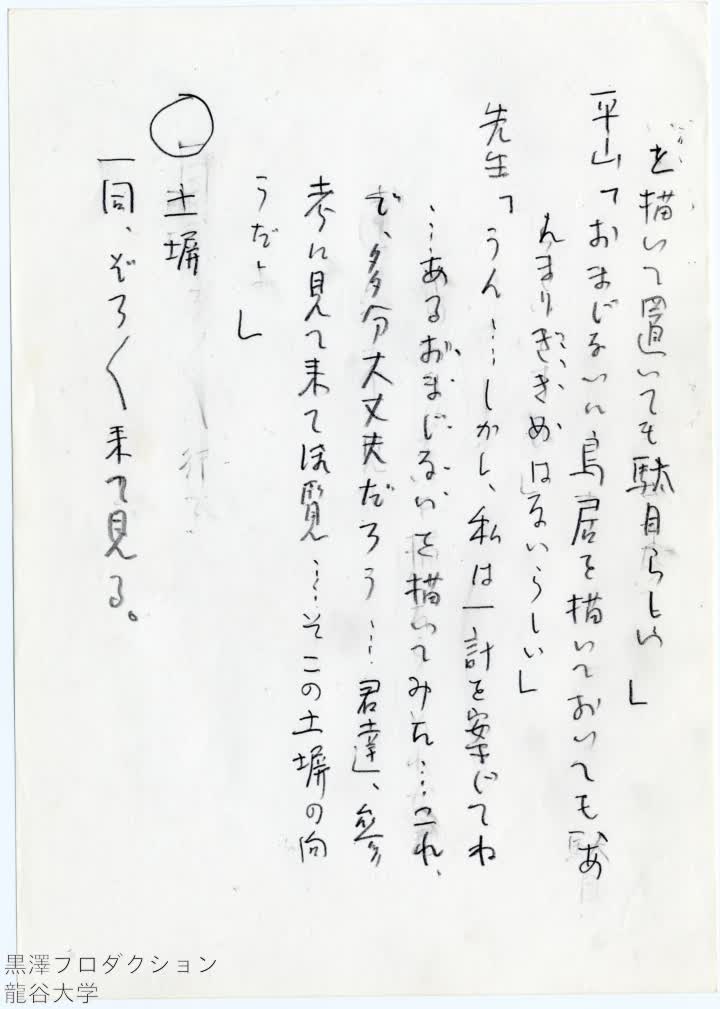 を描いて置いても駄目らしい」
平山「おまじないに鳥居を描いておいても、あ
んまりきゝめはないらしい」
先生「うん……しかし、私は一計を案じてね
…あるおまじないを描いてみた…これ、
で、多分大丈夫だろう…君達、参
考に見て来て御覧……そこの土塀の向
うだよ」
○土塀
一同、ぞろ〱来て見る。
黒澤プロダクション
龍谷大学